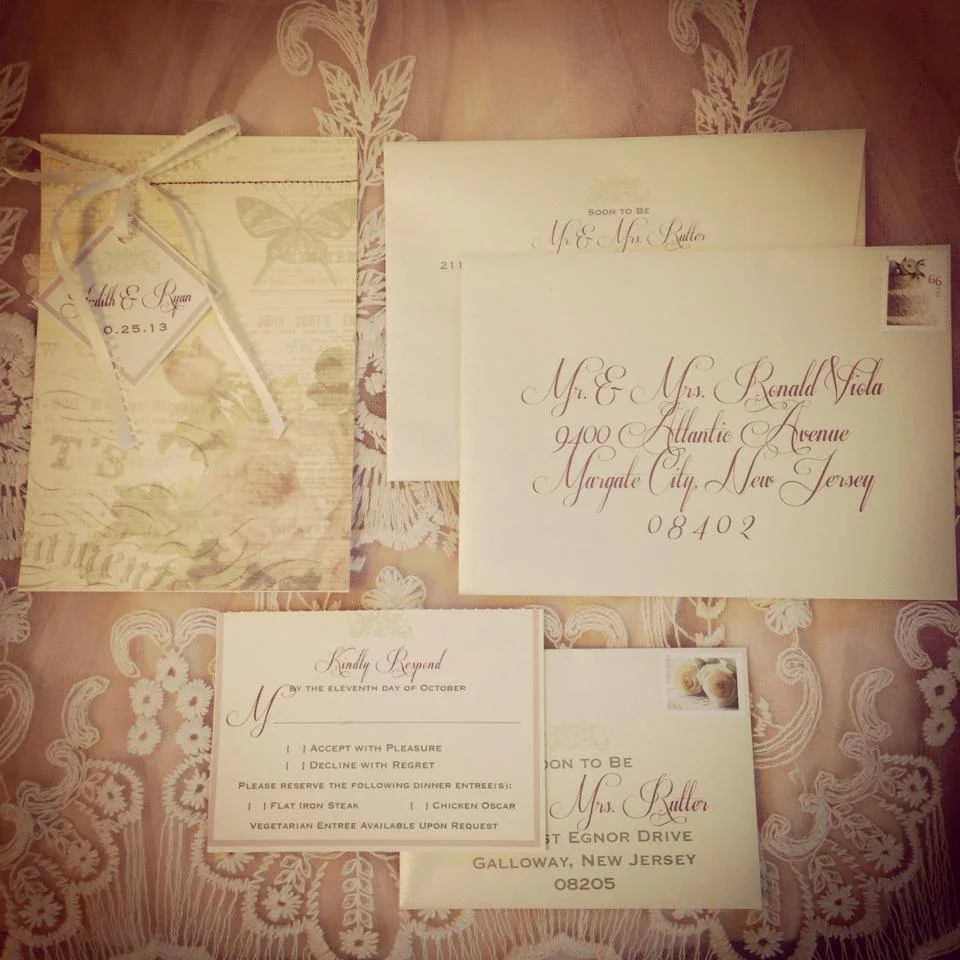 & Ryan
0.25.13
T'S
Soon to Be
Mr. & Mrs. Butler
211
66
Mr. & Mrs. Ronald Viola
9400 Atlantic Avenue
Margate City, New Jersey
08402
Kindly Respond
by the eleventh day of October
M
[ ] Accept with Pleasure
[ ] Decline with Regret
Please reserve the following dinner entree(s):
[ ] Flat Iron Steak [ ] Chicken Oscar
Vegetarian Entree Available Upon Request
oon to Be
Mrs. Butler
st Egnor Drive
Galloway, New Jersey
08205